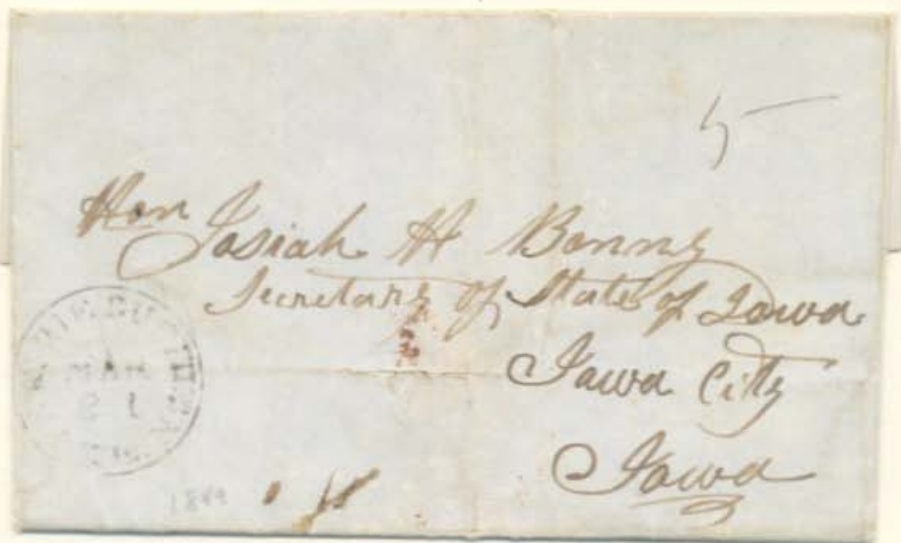 5
Hon Josiah H Bonny
Secretary of State of Iowa
Iowa City
Iowa
MAR
21
1849